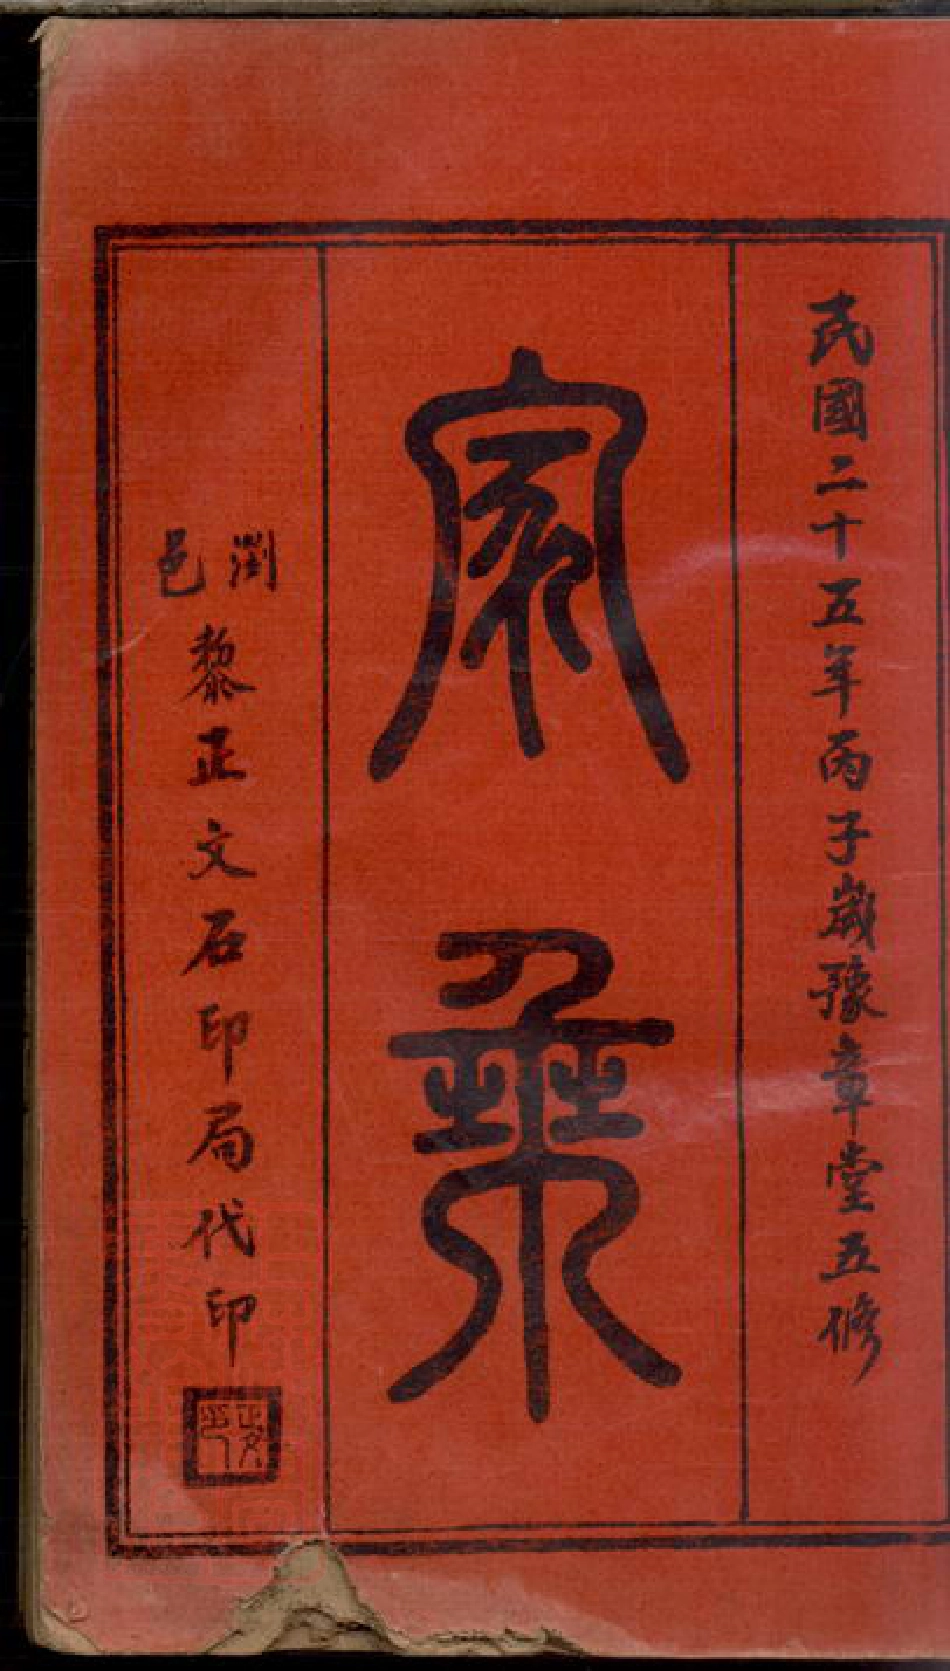 民國二十五年丙子歲豫章堂五修
家乘
瀏邑黎正文石印局代印